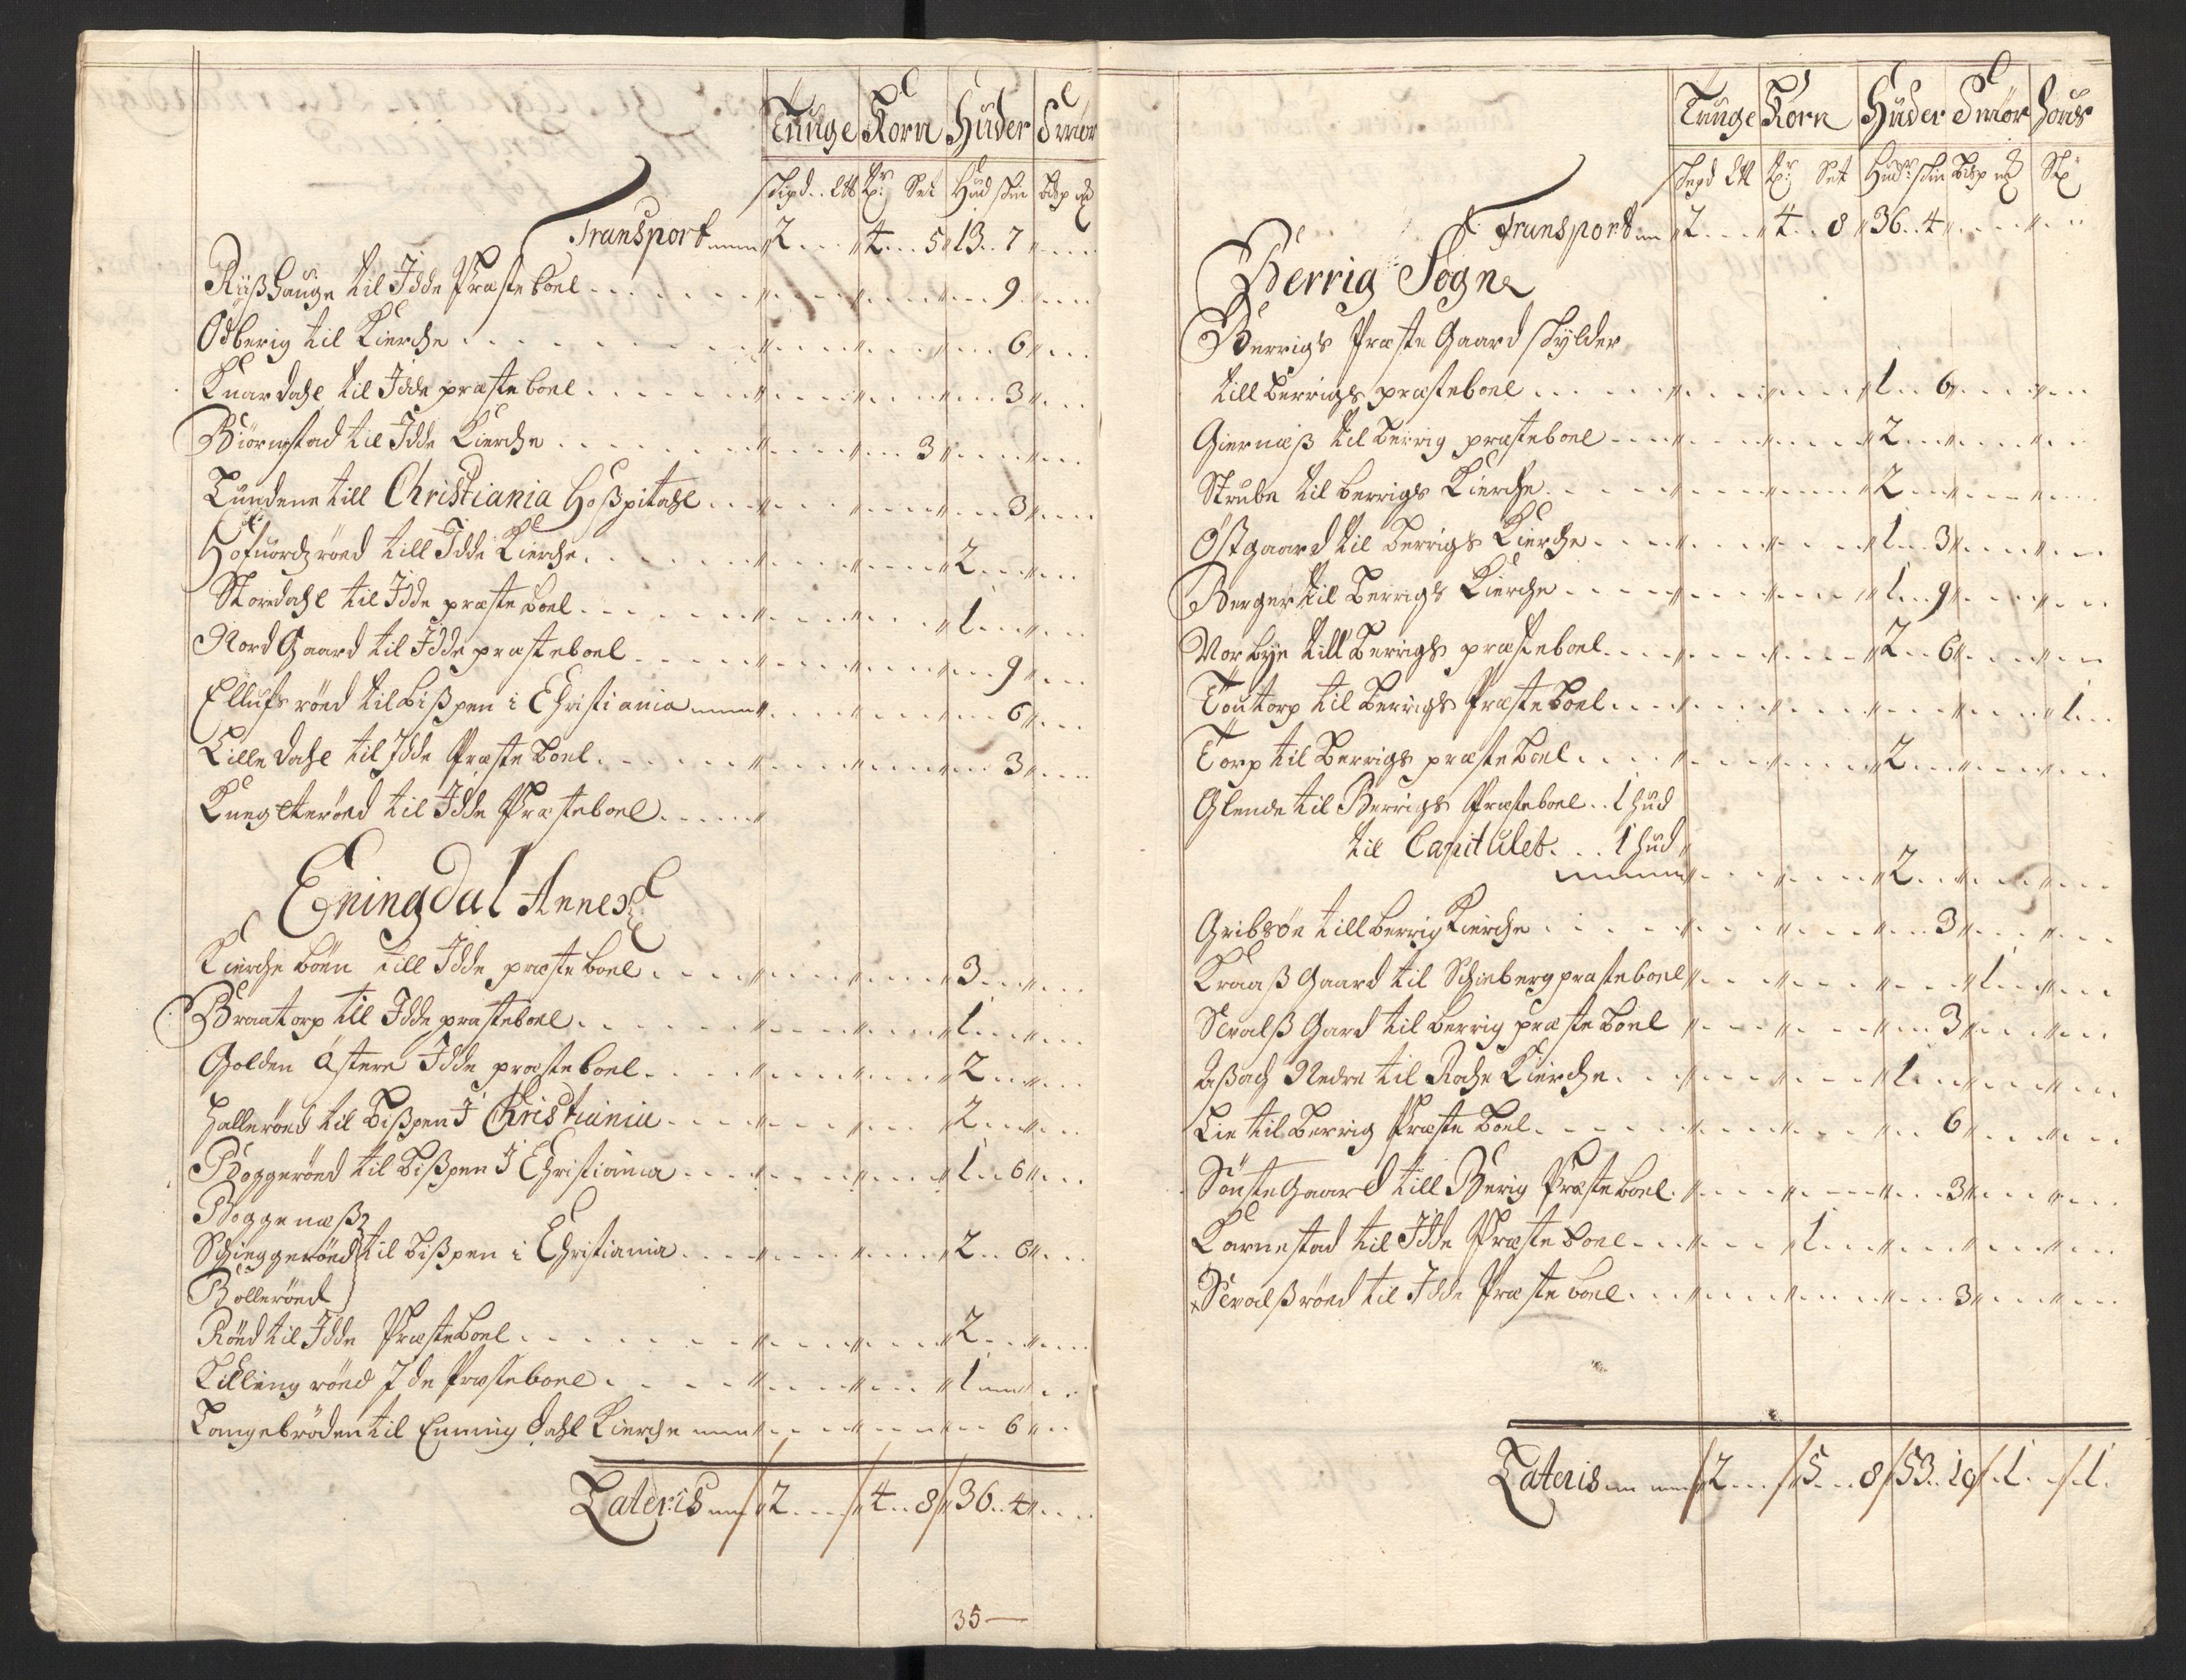 Tunge Korn Huder Smør
Skipd. Llb Tr Set Hud Skin Bdsp
Transport 2 4 5 13 7
Rüsshauge til Idde Præsteboel 9
Odberig til Kierche 6
Knardahl til Idde præsteboel 3
Biørnstad til Idde Kierche 3
Lundene till Christiania Hosspitahl 3
Hofuordzröed till Idde Kierche 2
Stordahl til Idde præsteboel 1
Nord Gaard til Idde præsteboel 9
Ellufsröed til Bisspen i Christiania 6
Lille dahl til Idde Præsteboel 3
Knegteröed til Idde Præsteboel
Eningdal Annex
Kierche böen till Idde præsteboel 3
Braatorp till Idde præsteboel 1
Golden Østere Idde præsteboel 2
Halleröed til Bisspen I Christiania 2
Poggeröed til Bisspen I Christiania 1 6
Poggenæss
Schieggeröed til Bisspen i Christiania 2 6
Bölleröed
Röed til Idde Præsteboel 2
Killingröed Ide Præsteboel 1
Tangebröden til Enningdahl Kierche 6
Lateris 2 4 8 36 4
35
Tunge Korn Huder Smør
Skpd Lll Tr Set Hud Skin Bdsp Stk
Transport 2 4 8 36 4
Berrig Sogne
Berrigs Præste Gaard skylder
till Berrigs præsteboel 1 6
Giernæss til Berrig præsteboel 2
Strube til Berrigs Kierche 2
Østgaard til Berrigs Kierche 1 3
Berger til Berrigs Kierche 1 9
Norbye till Berrigs præsteboel 2 6
Toutorp til Berrigs Præsteboel 1
Torp til Berrigs præsteboel 2
Glende til Berrigs Præsteboel 1 hud
til Capitulet 1 hud
2
Gribsöe till Berrig Kierche 3
Kraass Gaard til Schieberg præsteboel 1
Sevalss Gard til Berrig præsteboel 3
Nedre til Roche Kierche 1
Lie til Berrig Præsteboel 6
Sönste Gaard till Berrig Præsteboel 3
Karnestad til Idde Præsteboel 1
Sevalssröed til Idde Præsteboel 3
Lateris 2 5 8 53 10 1 1